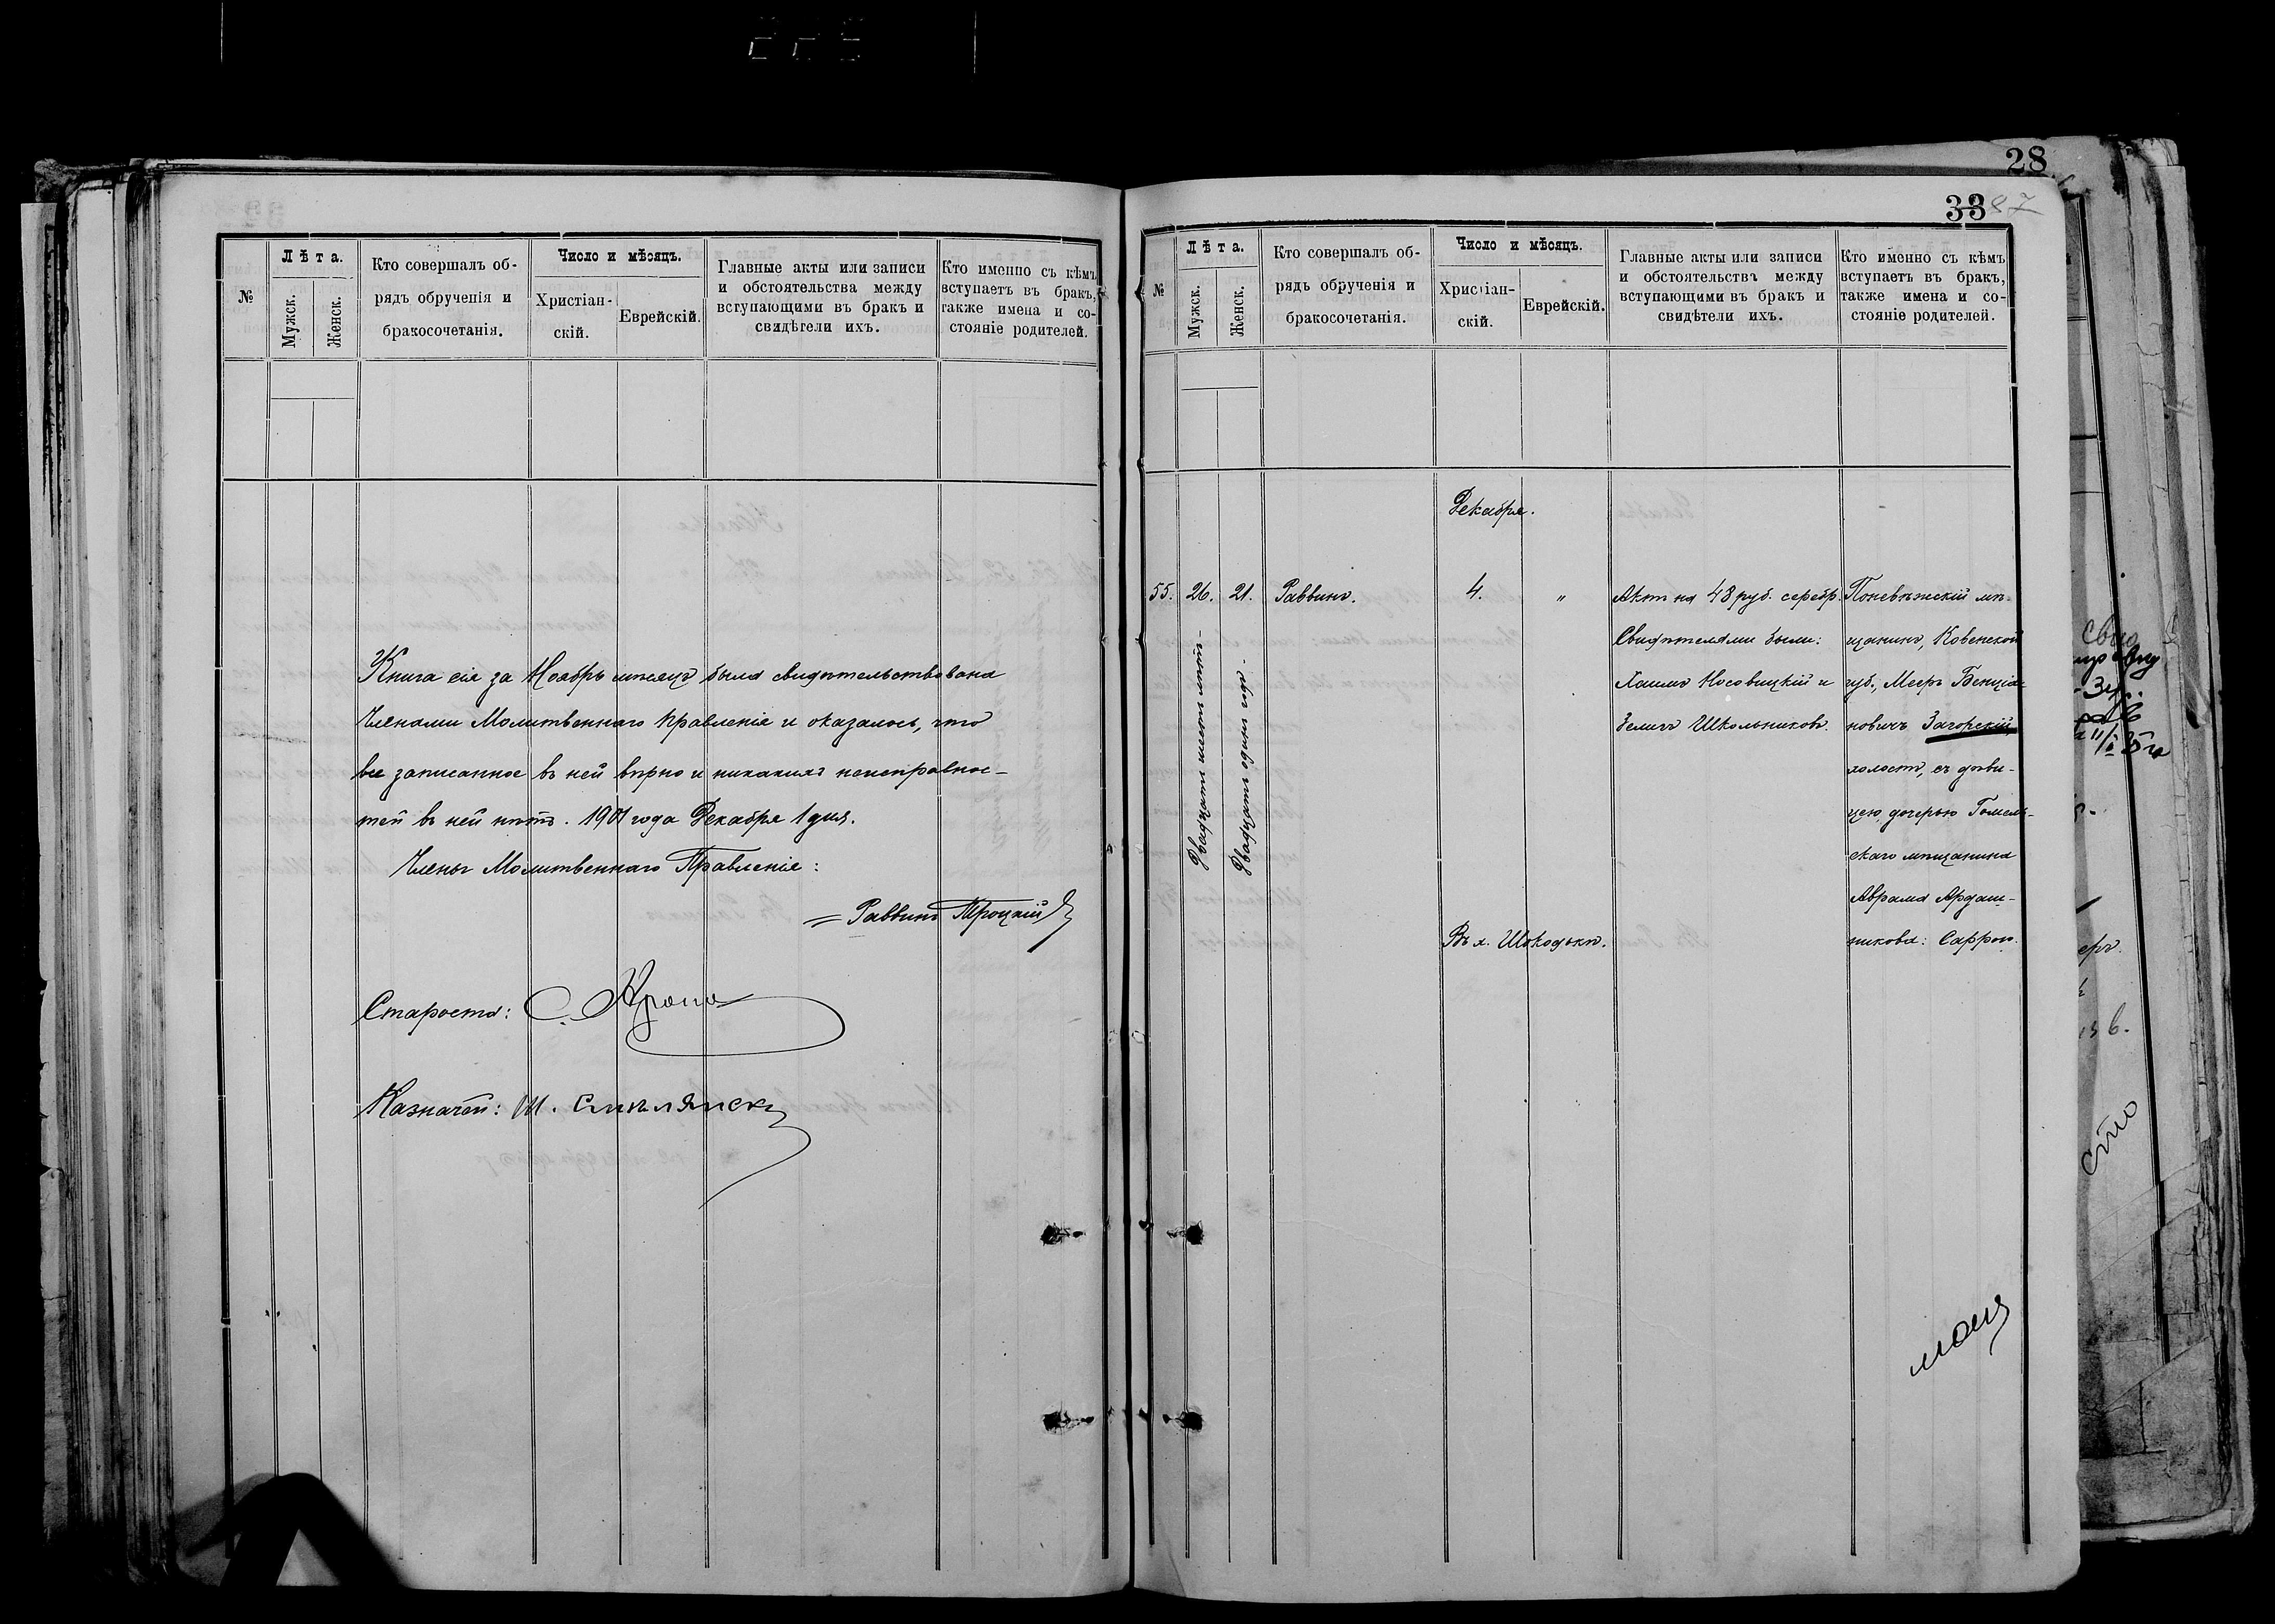 225
28
33 87
№
Лѣта.
Мужск.
Женск.
Кто совершалъ об-
рядъ обрученія и
бракосочетанія.
Число и мѣсяцъ.
Христіан-
скій.
Еврейскій.
Главные акты или записи
и обстоятельства между
вступающими въ бракъ и
свидѣтели ихъ.
Кто именно съ кѣмъ
вступаетъ въ бракъ,
также имена и со-
стояніе родителей.
Книга сія за Ноябрь мѣсяцъ была свидѣтельствована
Членами Молитвеннаго Правленія и оказалось, что
все записанное въ ней вѣрно и никакихъ неисправнос-
тей въ ней нѣтъ. 1901 года Декабря 1 дня.
Члены Молитвеннаго Правленія:
Раввинъ Троцкій
Староста: С.
Казначей: Ш.
№
Лѣта.
Мужск.
Женск.
Кто совершалъ об-
рядъ обрученія и
бракосочетанія.
Число и мѣсяцъ.
Христіан-
скій.
Еврейскій.
Главные акты или записи
и обстоятельства между
вступающими въ бракъ и
свидѣтели ихъ.
Кто именно съ кѣмъ
вступаетъ въ бракъ,
также имена и со-
стояніе родителей.
Декабря.
55.
26.
Двадцать шесть лѣтъ-
21.
Двадцать одинъ годъ-
Раввинъ.
4.
"
Актъ на 48 руб. серебр.
Свидѣтелями были:
Хаимъ Носовицкій и
Зелигъ Школьниковъ.
Поневѣжскій мѣ-
щанинъ, Ковенской
губ., Мееръ Бенціа-
новичъ Загорскій,
холостъ, съ дѣви-
цею, дочерью Гомель-
скаго мѣщанина
Аврама Ардаш-
никова: Саррою.
Въ